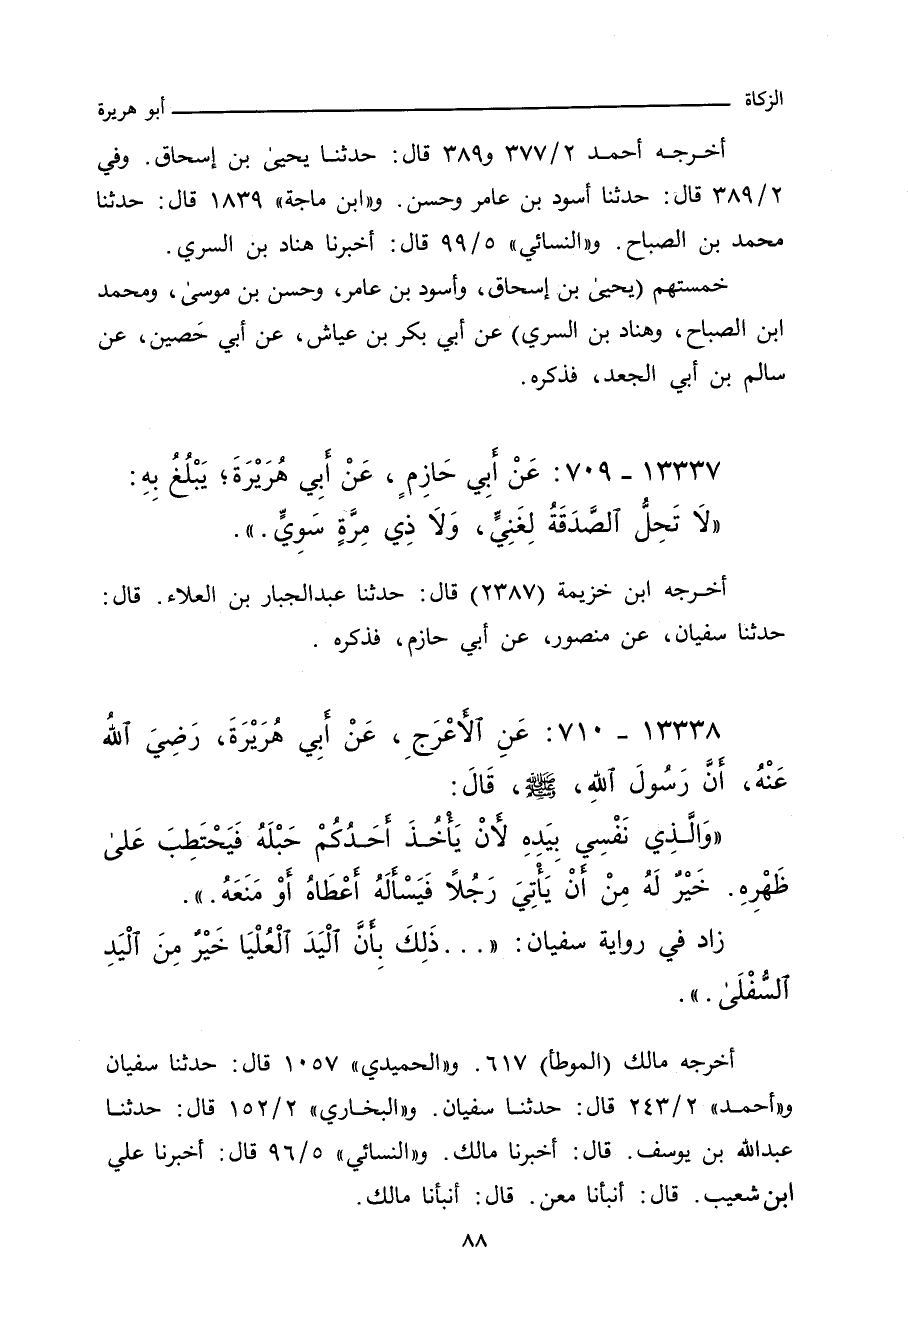 الزكاة أبو هريرة
أخرجه أحمد ٢/ ٣٧٧ و٣٨٩ قال: حدثنا يحيىٰ بن إسحاق. وفي
٢/ ٣٨٩ قال: حدثنا أسود بن عامر وحسن. و«ابن ماجة» ١٨٣٩ قال: حدثنا
محمد بن الصباح. و«النسائي» ٥/ ٩٩ قال: أخبرنا هناد بن السري.
خمستهم (يحيىٰ بن إسحاق، وأسود بن عامر، وحسن بن موسىٰ، ومحمد
ابن الصباح، وهناد بن السري) عن أبي بكر بن عياش، عن أبي حَصين، عن
سالم بن أبي الجعد، فذكره.
١٣٣٣٧ - ٧٠٩: عَنْ أَبِي حَازِمٍ، عَنْ أَبِي هُرَيْرَةَ؛ يَبْلُغُ بِهِ:
«لَا تَحِلُّ ٱلصَّدَقَةُ لِغَنِيٍّ، وَلَا ذِي مِرَّةٍ سَوِيٍّ.».
أخرجه ابن خزيمة (٢٣٨٧) قال: حدثنا عبدالجبار بن العلاء. قال:
حدثنا سفيان، عن منصور، عن أبي حازم، فذكره .
١٣٣٣٨ - ٧١٠: عَنِ ٱلأَعْرَجِ، عَنْ أَبِي هُرَيْرَةَ، رَضِيَ ٱللهُ
عَنْهُ، أَنَّ رَسُولَ ٱللهِ، ﷺ، قَالَ:
«وَالَّذِي نَفْسِي بِيَدِهِ لَأَنْ يَأْخُذَ أَحَدُكُمْ حَبْلَهُ فَيَحْتَطِبَ عَلَىٰ
ظَهْرِهِ. خَيْرٌ لَهُ مِنْ أَنْ يَأْتِيَ رَجُلًا فَيَسْأَلَهُ أَعْطَاهُ أَوْ مَنَعَهُ.».
زاد في رواية سفيان: «...ذَلِكَ بِأَنَّ ٱلْيَدَ ٱلْعُلْيَا خَيْرٌ مِنَ ٱلْيَدِ
ٱلسُّفْلَىٰ.».
أخرجه مالك (الموطأ) ٦١٧. و«الحميدي» ١٠٥٧ قال: حدثنا سفيان
و«أحمد» ٢/ ٢٤٣ قال: حدثنا سفيان. و«البخاري» ٢/ ١٥٢ قال: حدثنا
عبدالله بن يوسف. قال: أخبرنا مالك. و«النسائي» ٥/ ٩٦ قال: أخبرنا علي
ابن شعيب. قال: أنبأنا معن. قال: أنبأنا مالك.
٨٨